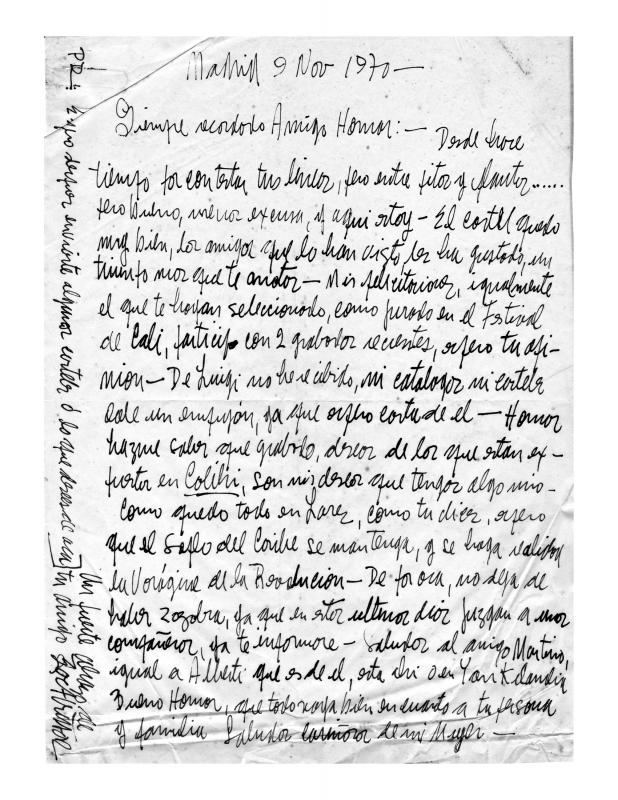 Madrid 9 Nov 1970 —
Siempre recordado Amigo Homar: — Desde hace
tiempo por contestar tus lineas, pero entre pitos y flautas......
pero bueno, menos excusa, y aqui estoy — El cartel quedo
muy bien, los amigos que lo han visto les ha gustado, un
triunfo mas que te anotas — Mis felicitaciones, igualmente
el que te hayan seleccionado, como jurado en el Festival
de Cali, participo con 2 grabados recientes, espero tu opi-
nion — De Luigi no he recibido, ni catalogos ni carteles
dale un empujón, ya que espero carta de el — Homar
hazme saber que grabado, deseas de los que estan ex-
puestos en Colibri, son mis deseos que tengas algo mio —
Como quedo todo en Lares, como tu dices, espero
que el soplo del Caribe se mantenga, y se haga realidad
la Vorágine de la Revolucion — De por aca, no deja de
haber zozobra, ya que en estos ultimos dias juzgan a unos
compañeros, ya te informare — Saludos al amigo Martino,
igual a Alberti que es de el, esta ahi o en Yankilandia
Bueno Homar, que todo vaya bien en cuanto a tu persona
y familia Saludos cariñosos de mi Mujer —
PD: Espero despues enviarte algunos carteles ó lo que desees de aca
Un fuerte abrazo de
tu amigo